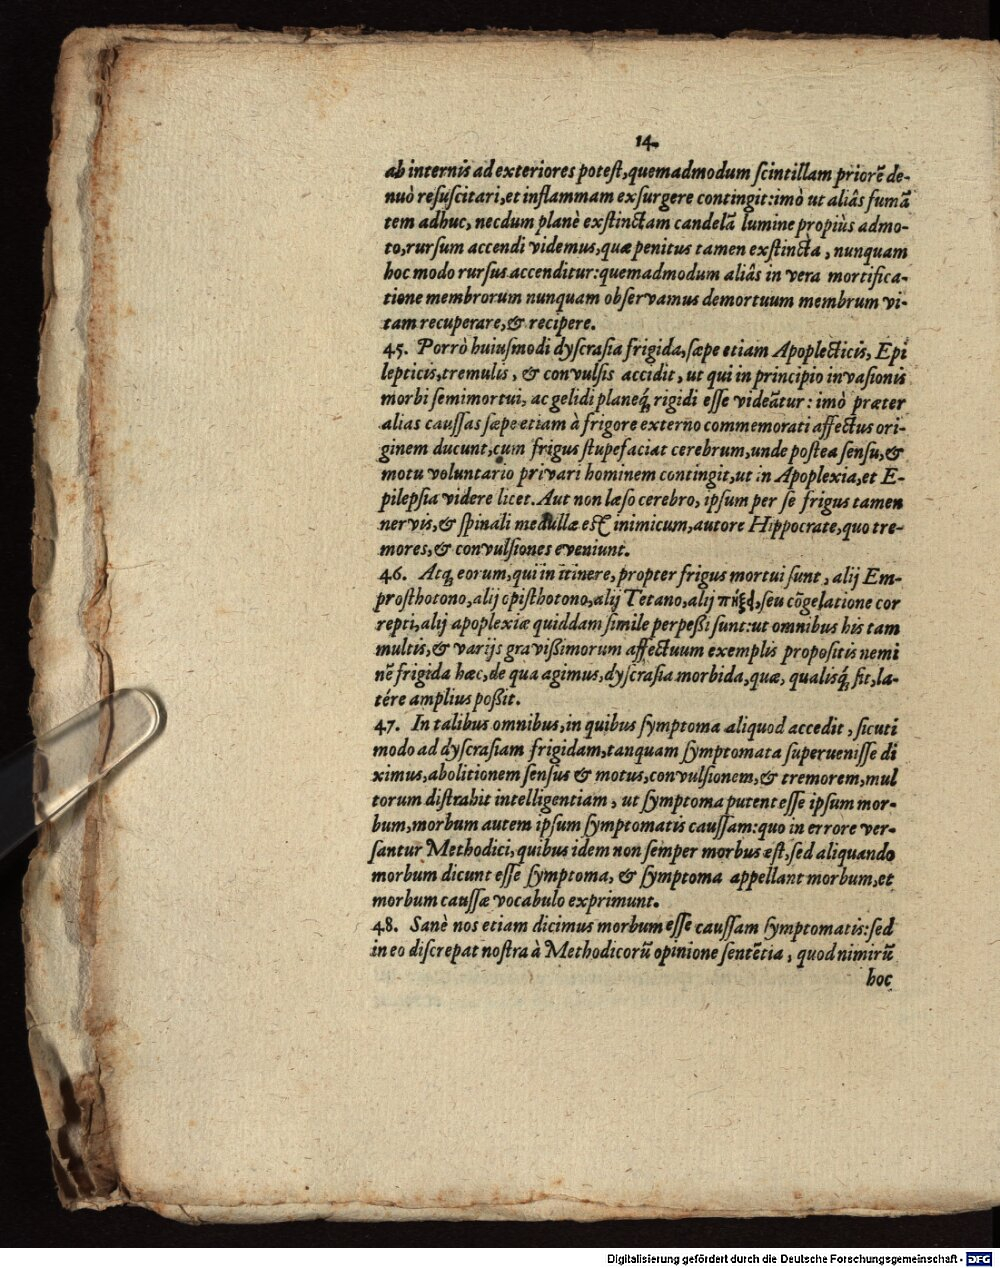 14.
ab internis ad exteriores potest, quemadmodum scintillam priorē de-
nuò resuscitari, et inflammam exsurgere contingit: imò ut aliâs fumā
tem adhuc, necdum planè exstinctam candelā lumine propiùs admo-
to, rursum accendi videmus, quæ penitus tamen exstincta, nunquam
hoc modo rursus accenditur: quemadmodum aliâs in vera mortifica-
tione membrorum nunquam observamus demortuum membrum vi-
tam recuperare, & recipere.
45. Porrò huiusmodi dyscrasia frigida, sæpe etiam Apoplecticis, Epi
lepticis, tremulis, & convulsis accidit, ut qui in principio invasionis
morbi semimortui, ac gelidi planeq́; rigidi esse videātur: imò præter
alias caussas sæpe etiam à frigore externo commemorati affectus ori-
ginem ducunt, cum frigus stupefaciat cerebrum, unde postea sensu, &
motu voluntario privari hominem contingit, ut in Apoplexia, et E-
pilepsia videre licet. Aut non læso cerebro, ipsum per se frigus tamen
nervis, & spinali medullæ est inimicum, autore Hippocrate, quo tre-
mores, & convulsiones eveniunt.
46. Atq; eorum, qui in itinere, propter frigus mortui sunt, alij Em-
prosthotono, alij opisthotono, alij Tetano, alij πήξ<span></span>ει, seu cōgelatione cor
repti, alij apoplexiæ quiddam simile perpeßi sunt: ut omnibus his tam
multis, & varijs gravißimorum affectuum exemplis propositis nemi
nē frigida hæc, de qua agimus, dyscrasia morbida, quæ, qualisq́; sit, la-
tére amplius poßit.
47. In talibus omnibus, in quibus symptoma aliquod accedit, sicuti
modo ad dyscrasiam frigidam, tanquam symptomata supervenisse di
ximus, abolitionem sensus & motus, convulsionem, & tremorem, mul
torum distrahit intelligentiam, ut symptoma putent esse ipsum mor-
bum, morbum autem ipsum symptomatis caussam: quo in errore ver-
santur Methodici, quibus idem non semper morbus est, sed aliquando
morbum dicunt esse symptoma, & symptoma appellant morbum, et
morbum caussæ vocabulo exprimunt.
48. Sanè nos etiam dicimus morbum esse caussam symptomatis: sed
in eo discrepat nostra à Methodicorū opinione sentētia, quod nimirū
hoc
Digitalisierung gefördert durch die Deutsche Forschungsgemeinschaft - DFG